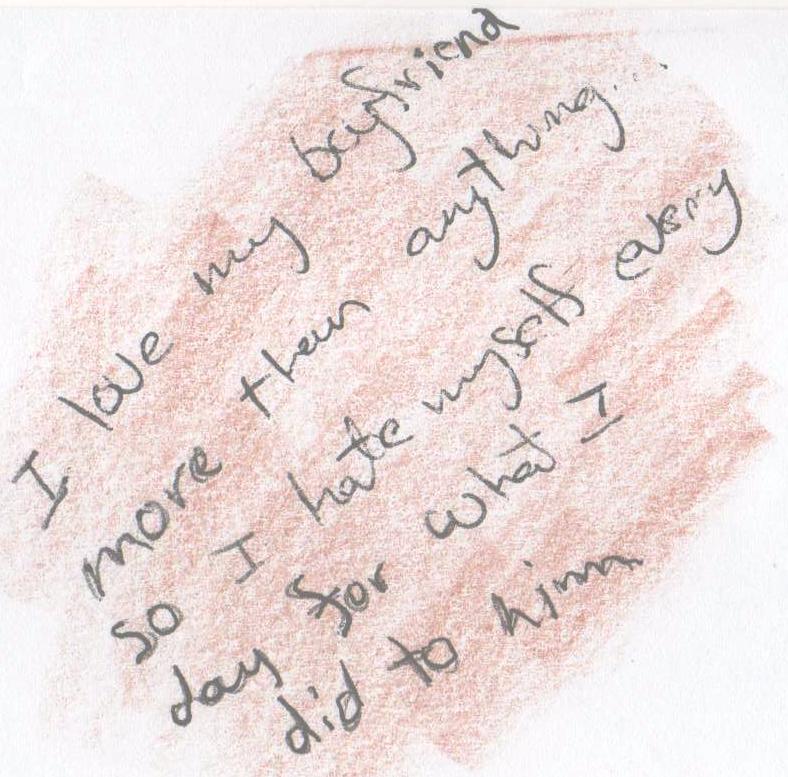 I love my boyfriend
more than anything...
so I hate myself every
day for what I
did to him